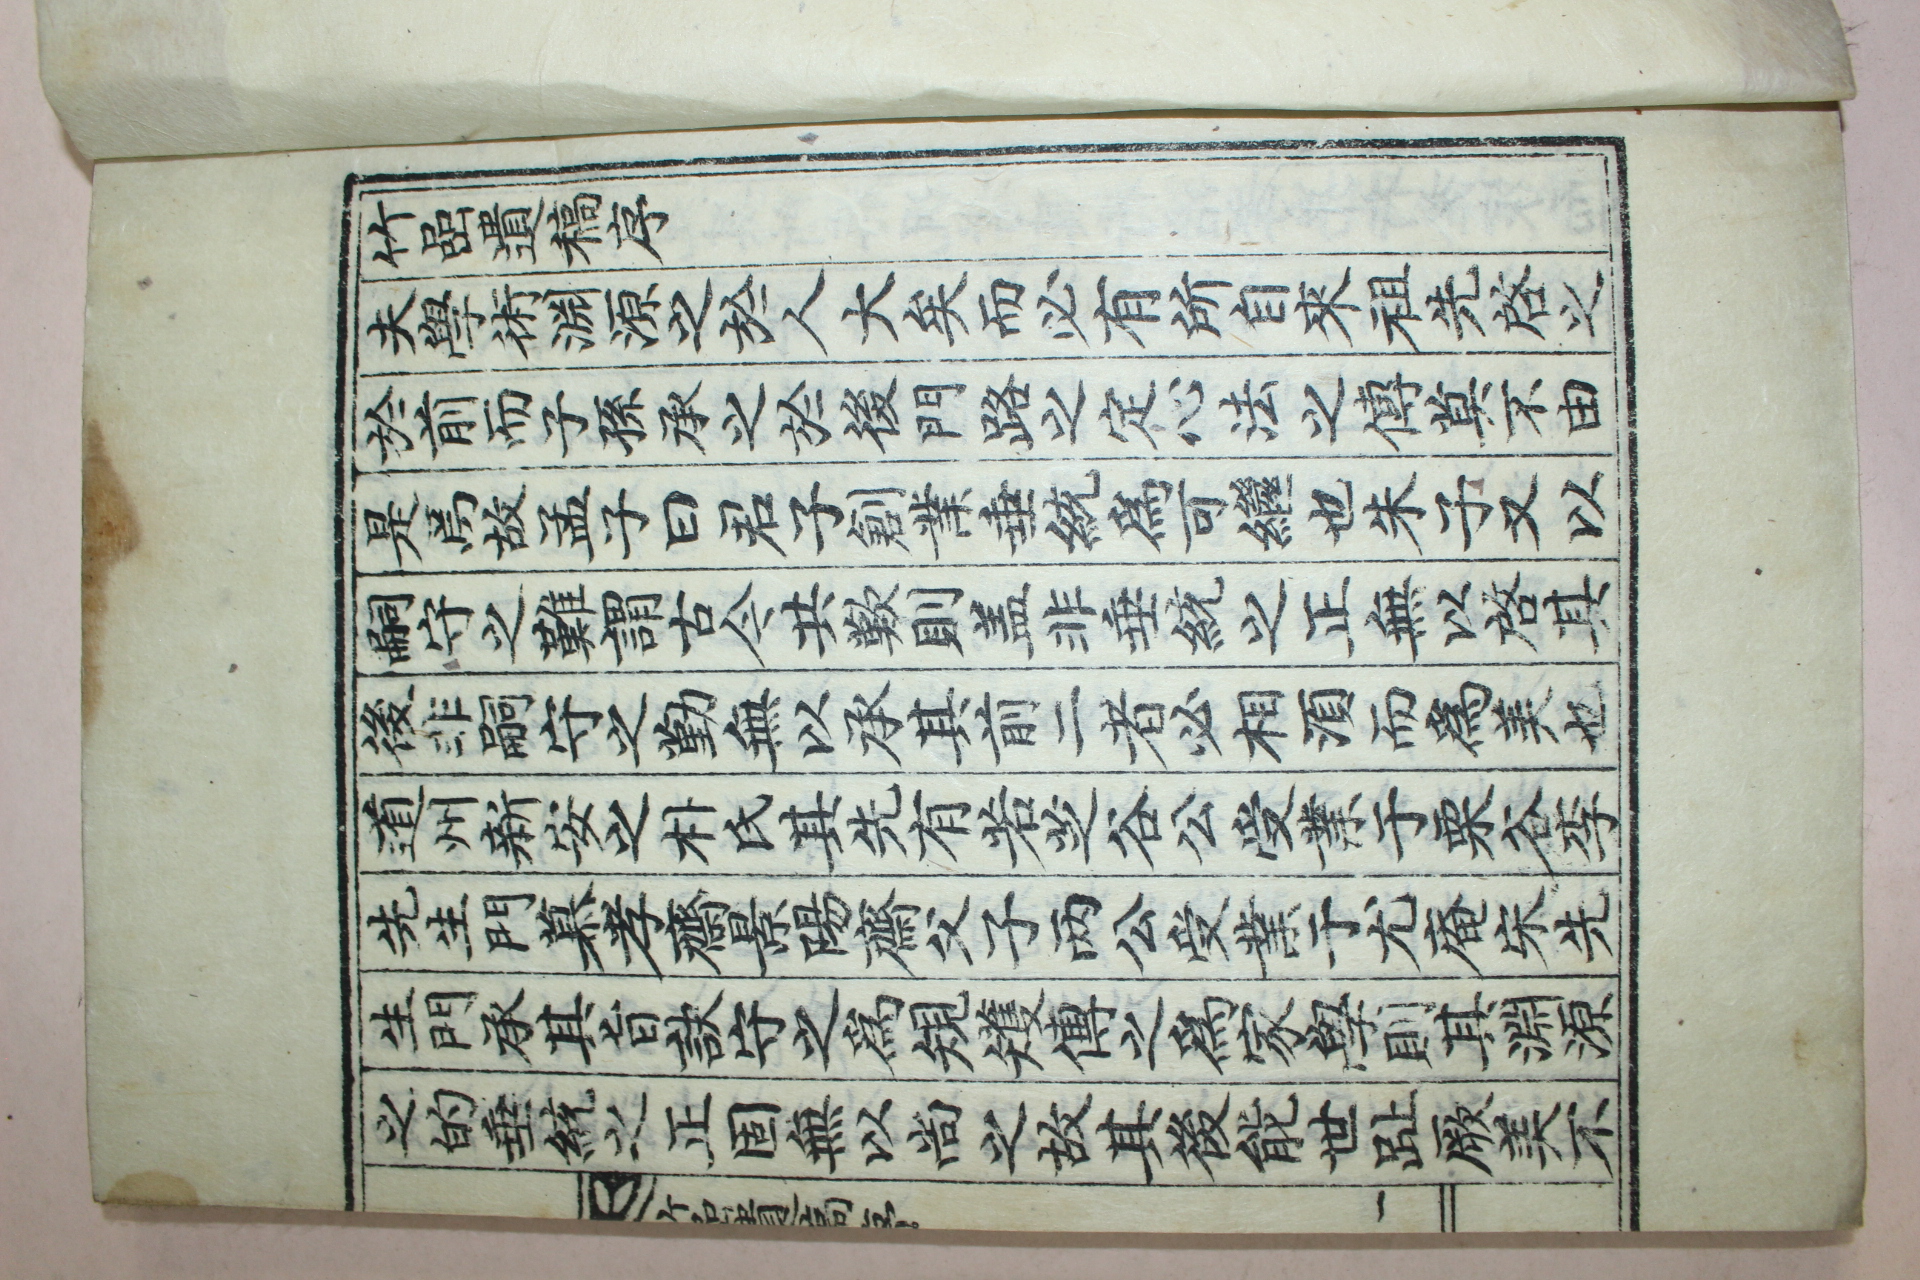 竹嵒遺稿序
夫學術淵源之於人大矣而必有所自來祖先啓之
於前而子孫承之於後門路之定心法之傳莫不由
是焉故孟子曰君子創業垂統爲可繼也朱子又以
嗣守之難謂古今共歎則盖非垂統之正無以啓其
後非嗣守之勤無以承其前二者必相須而爲美也
道州新安之朴氏其先有若逸谷公受業于栗谷李
先生門慕孝齋景陽齋父子兩公受業于尤庵宋先
生門承其旨訣守之爲規矱傳之爲家學則其淵源
之的垂統之正固無以尚之故其後能世趾厥美不
竹嵒遺稿序 一